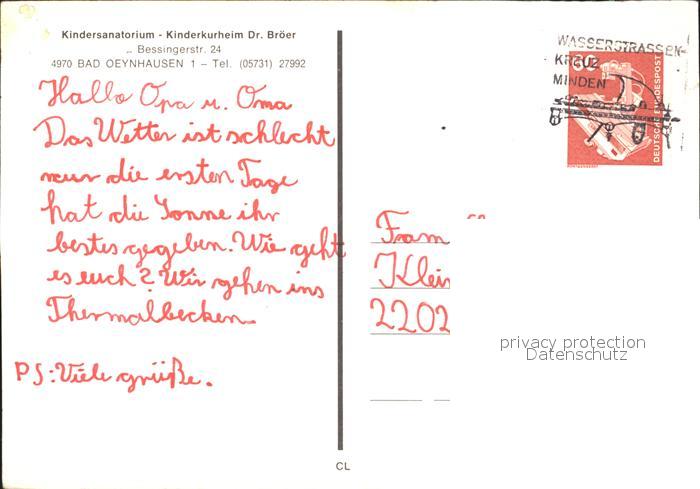 Kindersanatorium - Kinderkurheim Dr. Bröer
Bessingerstr. 24
4970 BAD OEYNHAUSEN 1 – Tel. (05731) 27992
Hallo Opa u. Oma
Das Wetter ist schlecht
nur die ersten Tage
hat die Sonne ihr
bestes gegeben. Wie geht
es euch? Wir gehen ins
Thermalbecken.
PS: Viele grüße.
WASSERSTRASSEN-
KREUZ
MINDEN
DEUTSCHE BUNDESPOST
Fam
Klein
2202
privacy protection
Datenschutz
CL